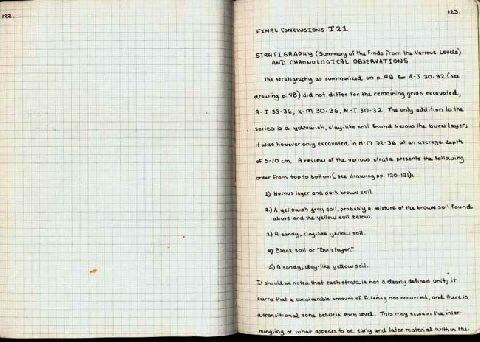 122.
123.
FINAL CONCLUSIONS I 21
STRATIGRAPHY (Summary of the Finds from the Various Levels)
AND CHRONOLOGICAL OBSERVATIONS
The stratigraphy as summarized on p. 98 for 30-32 (see
drawing p. 98) did not differ for the remaining grids excavated,
33-36, 30-36, 30-32. The only addition to the
series is a yellowish, clay-like soil found below the burnt layer;
it was however only excavated in 32-36 at an average depth
of 5-10 cm. A review of the various strata presents the following
order from top to bottom (see drawing pp. 120-121).
1) Humus layer and dark brown soil
2) A yellowish grey soil, probably a mixture of the brown soil found
above and the yellow soil below.
3) A sandy, clay-like yellow soil.
4) Black soil or "burnt layer."
5) A sandy, clay-like yellow soil.
It should be noted that each strata is not a clearly defined unity; it
seems that a considerable amount of filtering has occurred, and there is
a transitional zone between each level. This may explain the inter-
mingling of what appears to be early and later material within the